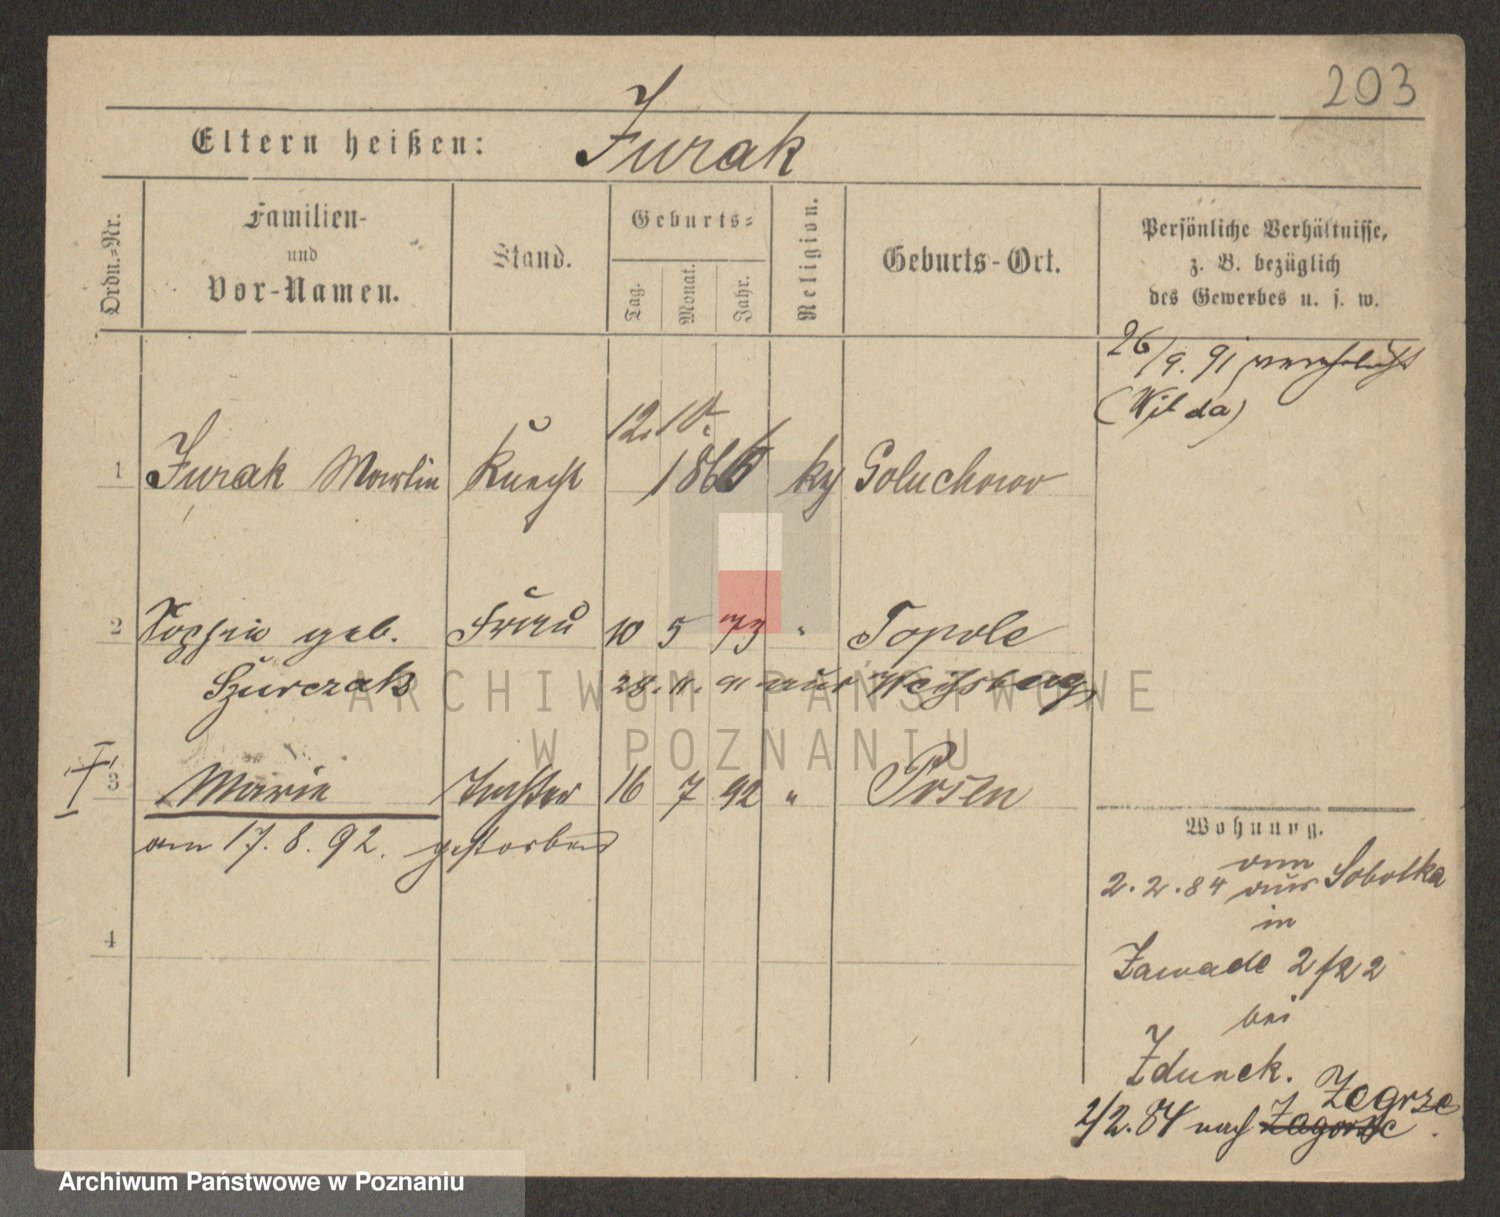 203
Eltern heißen: Jurak
Ordn.-Nr.
Familien-
und
Vor-Namen.
Stand.
Geburts-
Tag.
Monat.
Jahr.
Religion.
Geburts-Ort.
Persönliche Verhältnisse,
z. B. bezüglich
des Gewerbes u. s. w.
26/9. 91 verehelicht
(Wilda)
12. 10.
1 Jurak Martin Knecht 186 kg Goluchowo
2 geb. Frau 10 5 73 " Topole
Szurczak 28. 11. 91 aus
3 Marie Tochter 16 7 92 " Posen
am 17. 8. 92. gestorben
4
Wohnung.
von
2. 2. 84 aus Sobotka
in
Zawade 2/22
bei
Zdunek.
Zegrze
2/2. 84 nach Zagorze
ARCHIWUM PAŃSTWOWE
W POZNANIU
Archiwum Państwowe w Poznaniu